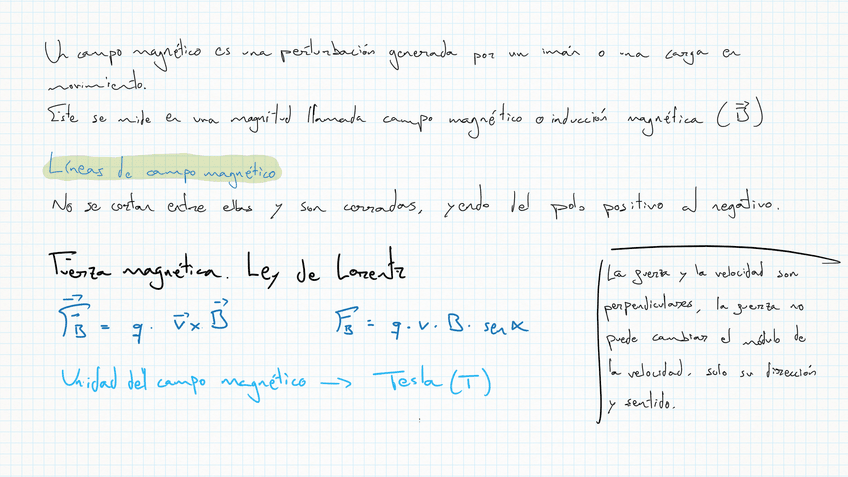 Un campo magnético es una perturbación generada por un imán o una carga en
movimiento.
Este se mide en una magnitud llamada campo magnético o inducción magnética (B⃗)
Líneas de campo magnético
No se cortan entre ellas y son cerradas, yendo del polo positivo al negativo.
Fuerza magnética. Ley de Lorentz
F⃗_B = q · v⃗ x B⃗
F_B = q · v · B · sen α
Unidad del campo magnético → Tesla (T)
La fuerza y la velocidad son
perpendiculares, la fuerza no
puede cambiar el módulo de
la velocidad, solo su dirección
y sentido.